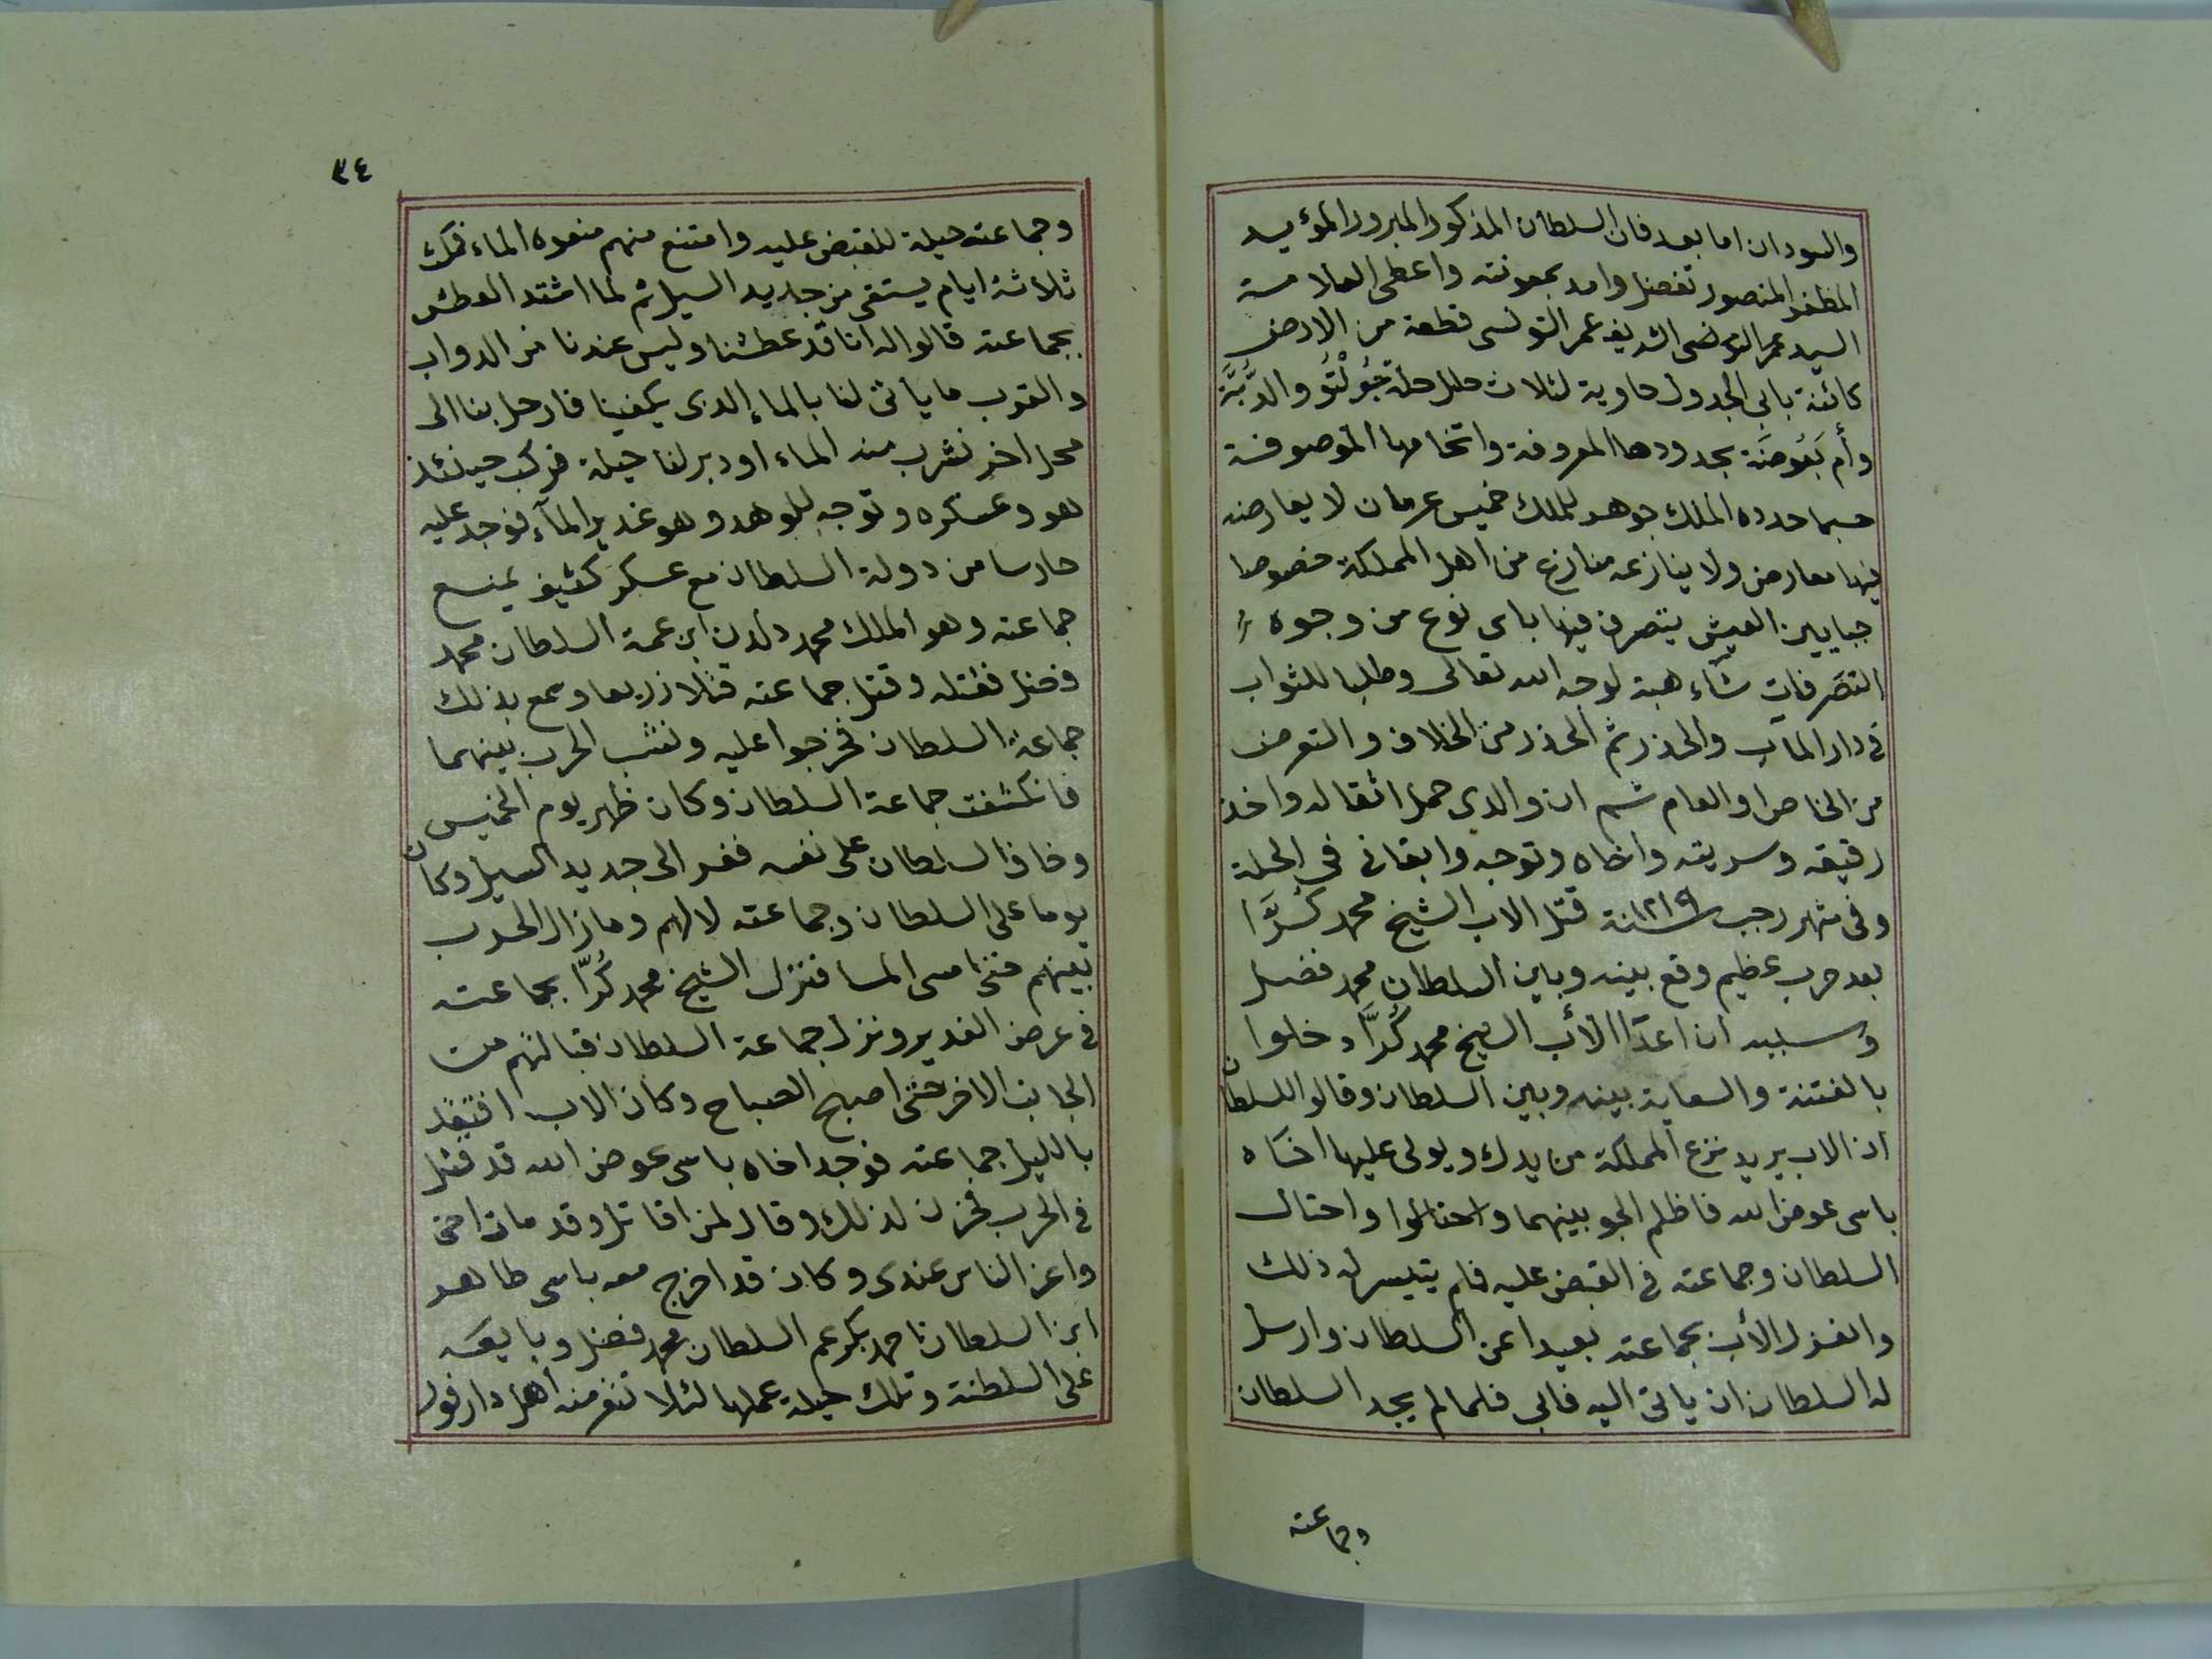 والسودان اما بعد فان السلطان المذكور المبرور المؤيد
المظفر المنصور تفضل وامد بمعونته واعطى العلامة
السيد عمر التونسى الشريف عمر التونسى قطعة من الارض
كائنة بابى الجدول حاوية لثلاث حلل حلة جُوُلْتُو والدُّبَّة
وأم بَعُوضَة بحدودها المعروفة واتخامها الموصوفة
حسبما حدده الملك جوهر للملك خميس عرمان لا يعارضه
فيها معارض ولا ينازعه منازع من اهل المملكة خصوصا
جبايين العيش يتصرف فيها باى نوع من وجوه
التصرفات شاء هبة لوجه الله تعالى وطلبا للثواب
فى دار المآب والحذر ثم الحذر من الخلاف والتعرض
من الخاص او العام ثم ان والدى حمل اثقاله واخذ
رقيقه وسريته واخاه وتوجه وابقانى فى الحلة
وفى شهر رجب سنة ١٢١٩ قتل الاب الشيخ محمد كُرَّا
بعد حرب عظيم وقع بينه وبين السلطان محمد فضل
وسببه ان اعدآ الأب الشيخ محمد كُرَّا دخلوا
بالفتنة والسعاية بينه وبين السلطان وقالوا للسلطان
ان الاب يريد نزع المملكة من يدك ويولى عليها اخاه
باسى عوض الله فاظلم الجو بينهما واحتالوا واحتال
السلطان وجماعته فى القبض عليه فلم يتيسر له ذلك
وانعزل الأب بجماعته بعيدا عن السلطان وارسل
له السلطان ان ياتى اليه فابى فلما لم يجد السلطان
وجماعته
٣٤
وجماعته حيلة للقبض عليه وامتنع منهم منعوه الماء فمكث
ثلاثة ايام يستقى من جديد السيل ثم لما اشتد العطش
بجماعته قالوا له اننا قد عطشنا وليس عندنا من الدواب
والقرب ما ياتى لنا بالماء الذى يكفينا فارحل بنا الى
محل اخر نشرب منه الماء او دبر لنا حيلة فركب حينئذ
هو وعسكره وتوجه للوهد وهو غدير المآء فوجد عليه
حارسا من دولة السلطان مع عسكر كثيف يمنع
جماعته وهو الملك محمد دلدن ابن عمة السلطان محمد
فضل فقتله وقتل جماعته قتلا ذريعا وسمع بذلك
جماعة السلطان فخرجوا عليه ونشب الحرب بينهما
فانكشفت جماعة السلطان وكان ظهر يوم الخميس
وخاف السلطان على نفسه ففر الى جديد السيل وكان
يوما على السلطان وجماعته لا لهم ومازال الحرب
بينهم حتى امسى المسا فنزل الشيخ محمد كُرَّا بجماعته
فى عرض الغدير ونزل جماعة السلطان قبالتهم من
الجانب الاخر حتى اصبح الصباح وكان الاب افتقد
بالليل جماعته فوجد اخاه باسى عوض الله قد قتل
فى الحرب فحزن لذلك وقال لمن اقاتل وقد مات اخى
واعز الناس عندى وكان قد اخرج معه باسى طاهر
ابن السلطان احمد بكر عم السلطان محمد فضل وبايعه
على السلطنة وتلك حيلة عملها لئلا تنفر منه اهل دارفور